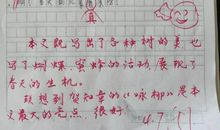 真
本文既写出了各种树的美，也
写了蝴蝶、蜜蜂的活动，展现了
春天的生机。
联想到贺知章的《咏柳》是本
文最大的亮点，很好！
4.7